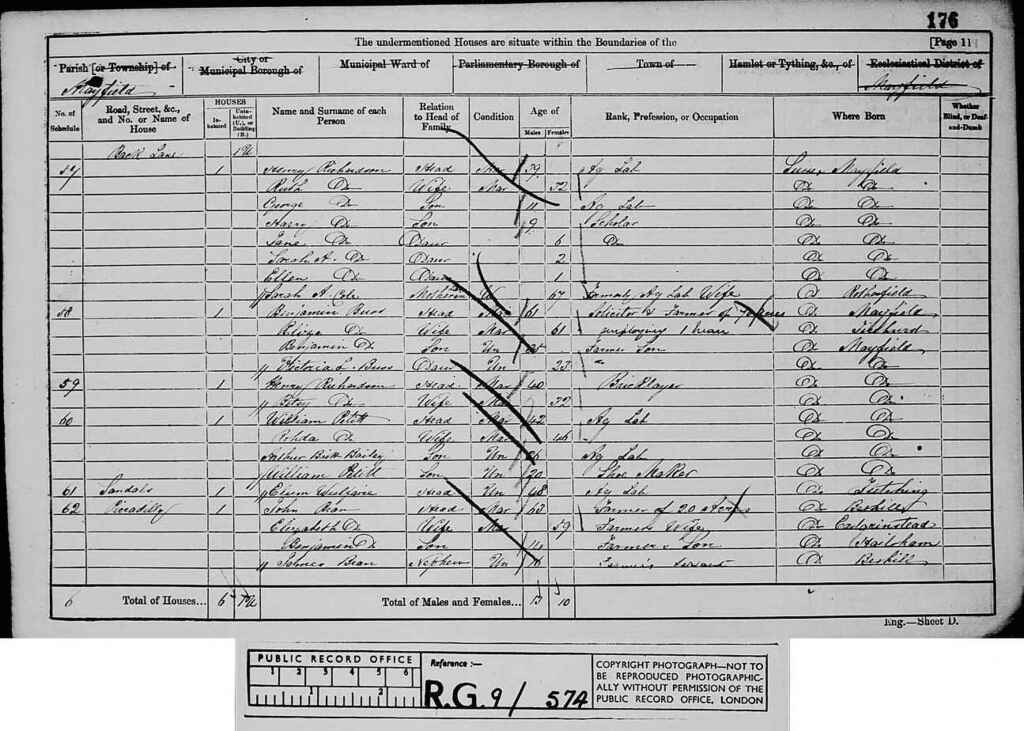 176
The undermentioned Houses are situate within the Boundaries of the [Page 11
Parish [or Township] of City or Municipal Borough of Municipal Ward of Parliamentary Borough of Town of Hamlet or Tything, &c., of Ecclesiastical District of
Mayfield Mayfield
No. of Schedule Road, Street, &c., and No. or Name of House HOUSES Inhabited Uninhabited (U.), or Building (B.) Name and Surname of each Person Relation to Head of Family Condition Age of Males Females Rank, Profession, or Occupation Where Born Whether Blind, or Deaf-and-Dumb
Back Lane 1 U
57 1 Henry Richardson Head Mar 39 Ag Lab Sussex Mayfield
Ruth Do Wife Mar 32 Do Do
George Do Son 11 Ag Lab Do Do
Harry Do Son 9 Scholar Do Do
Jane Do Daur 6 Do Do Do
Sarah A. Do Daur 2 Do Do
Ellen Do Daur 1 Do Do
Sarah A. Cole W 67 Formerly Ag Lab Wife Do Rotherfield
58 1 Benjamin Buss Head Mar 61 Farmer of acres Do Mayfield
Do Wife Mar 61 employing 1 man Do Ticehurst
Benjamin Do Son Un Farmer Son Do Mayfield
Victoria Buss Daur Un 23 Do Do
59 1 Henry Richardson Head Mar 40 Bricklayer Do Do
Do Wife Mar 32 Do Do
60 1 William Head Mar 42 Ag Lab Do Do
Rohda Do Wife Mar 46 Do Do
Arthur Bailey Son Un Ag Lab Do Do
William Son Un 20 Shoe Maker Do Do
61 Sandals 1 Head Un 48 Ag Lab Do
62 Picadilly 1 John Bean Head Mar 63 Farmer of 20 Acres Do Bexhill
Elizabeth Do Wife Mar 59 Farmers Wife Do
Benjamin Do Son 14 Farmer s Son Do Hailsham
James Bean Nephew Un Farmers Servant Do Bexhill
6 Total of Houses... 6 1U Total of Males and Females... 13 10
Eng.—Sheet D.
PUBLIC RECORD OFFICE
1 2 3 4 5 6
1 2
Reference :—
R.G. 9/ 574
COPYRIGHT PHOTOGRAPH—NOT TO
BE REPRODUCED PHOTOGRAPHIC-
ALLY WITHOUT PERMISSION OF THE
PUBLIC RECORD OFFICE, LONDON